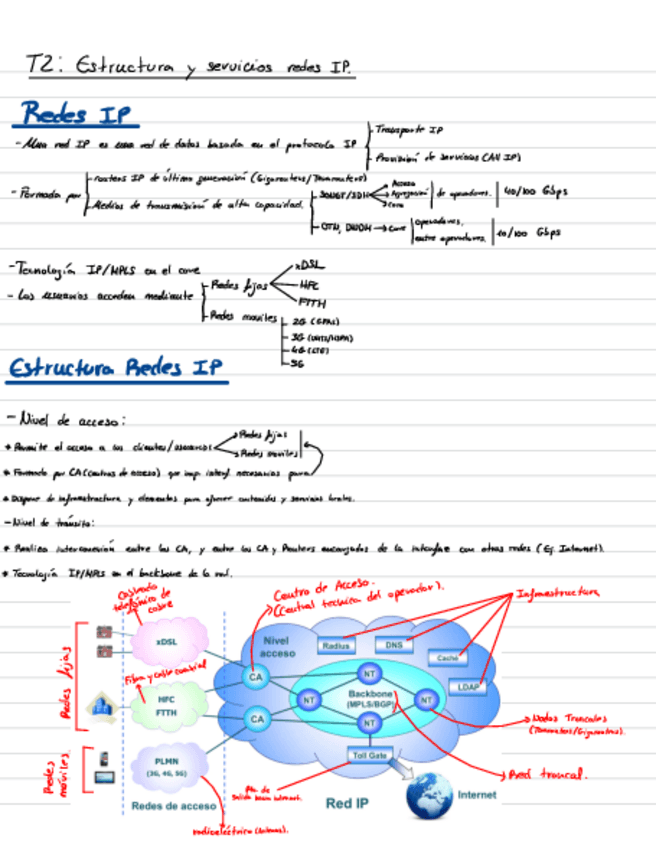 T2: Estructura y servicios redes IP.
Redes IP
- Una red IP es una red de datos basada en el protocolo IP
- Transporte IP
- Provisión de servicios (AV IP)
- Formada por
- routers IP de última generación (Gigarouters/Terarouters)
- Medios de transmisión de alta capacidad.
- SONET/SDH
Acceso
Agregación
Core
de operadores.
40/100 Gbps
- OTN, DWDM → Core
operadores.
entre operadores.
40/100 Gbps
- Tecnología IP/MPLS en el core
- Los usuarios acceden mediante
- Redes fijas
xDSL
HFC
FTTH
- Redes moviles
- 2G (GPRS)
- 3G (UMTS/HSPA)
- 4G (LTE)
- 5G
Estructura Redes IP
- Nivel de acceso:
* Permite el acceso a los clientes/usuarios
Redes fijas
Redes moviles
* Formado por CA (centros de acceso) que imp. interf. necesarias para
* Dispone de infraestructura y elementos para ofrecer contenidos y servicios locales.
- Nivel de tránsito:
* Realiza interconexión entre los CA, y entre los CA y Routers encargados de la interfase con otras redes (Ej. Internet).
* Tecnología IP/MPLS en el backbone de la red.
Cableado telefónico de cobre
Centro de Acceso.
(Central tecnica del operador).
Infraestructura
Redes fijas
xDSL
Nivel acceso
Radius
DNS
Caché
LDAP
CA
NT
Fibra y cable coaxial
HFC
FTTH
NT
Backbone
(MPLS/BGP)
NT
CA
NT
Nodos Troncales
(Terarouters/Gigarouters).
Redes móviles
PLMN
(3G, 4G, 5G)
Toll Gate
Pto. de salida hacia internet.
Red troncal.
Redes de acceso
Red IP
Internet
radioeléctrico (Antenas).